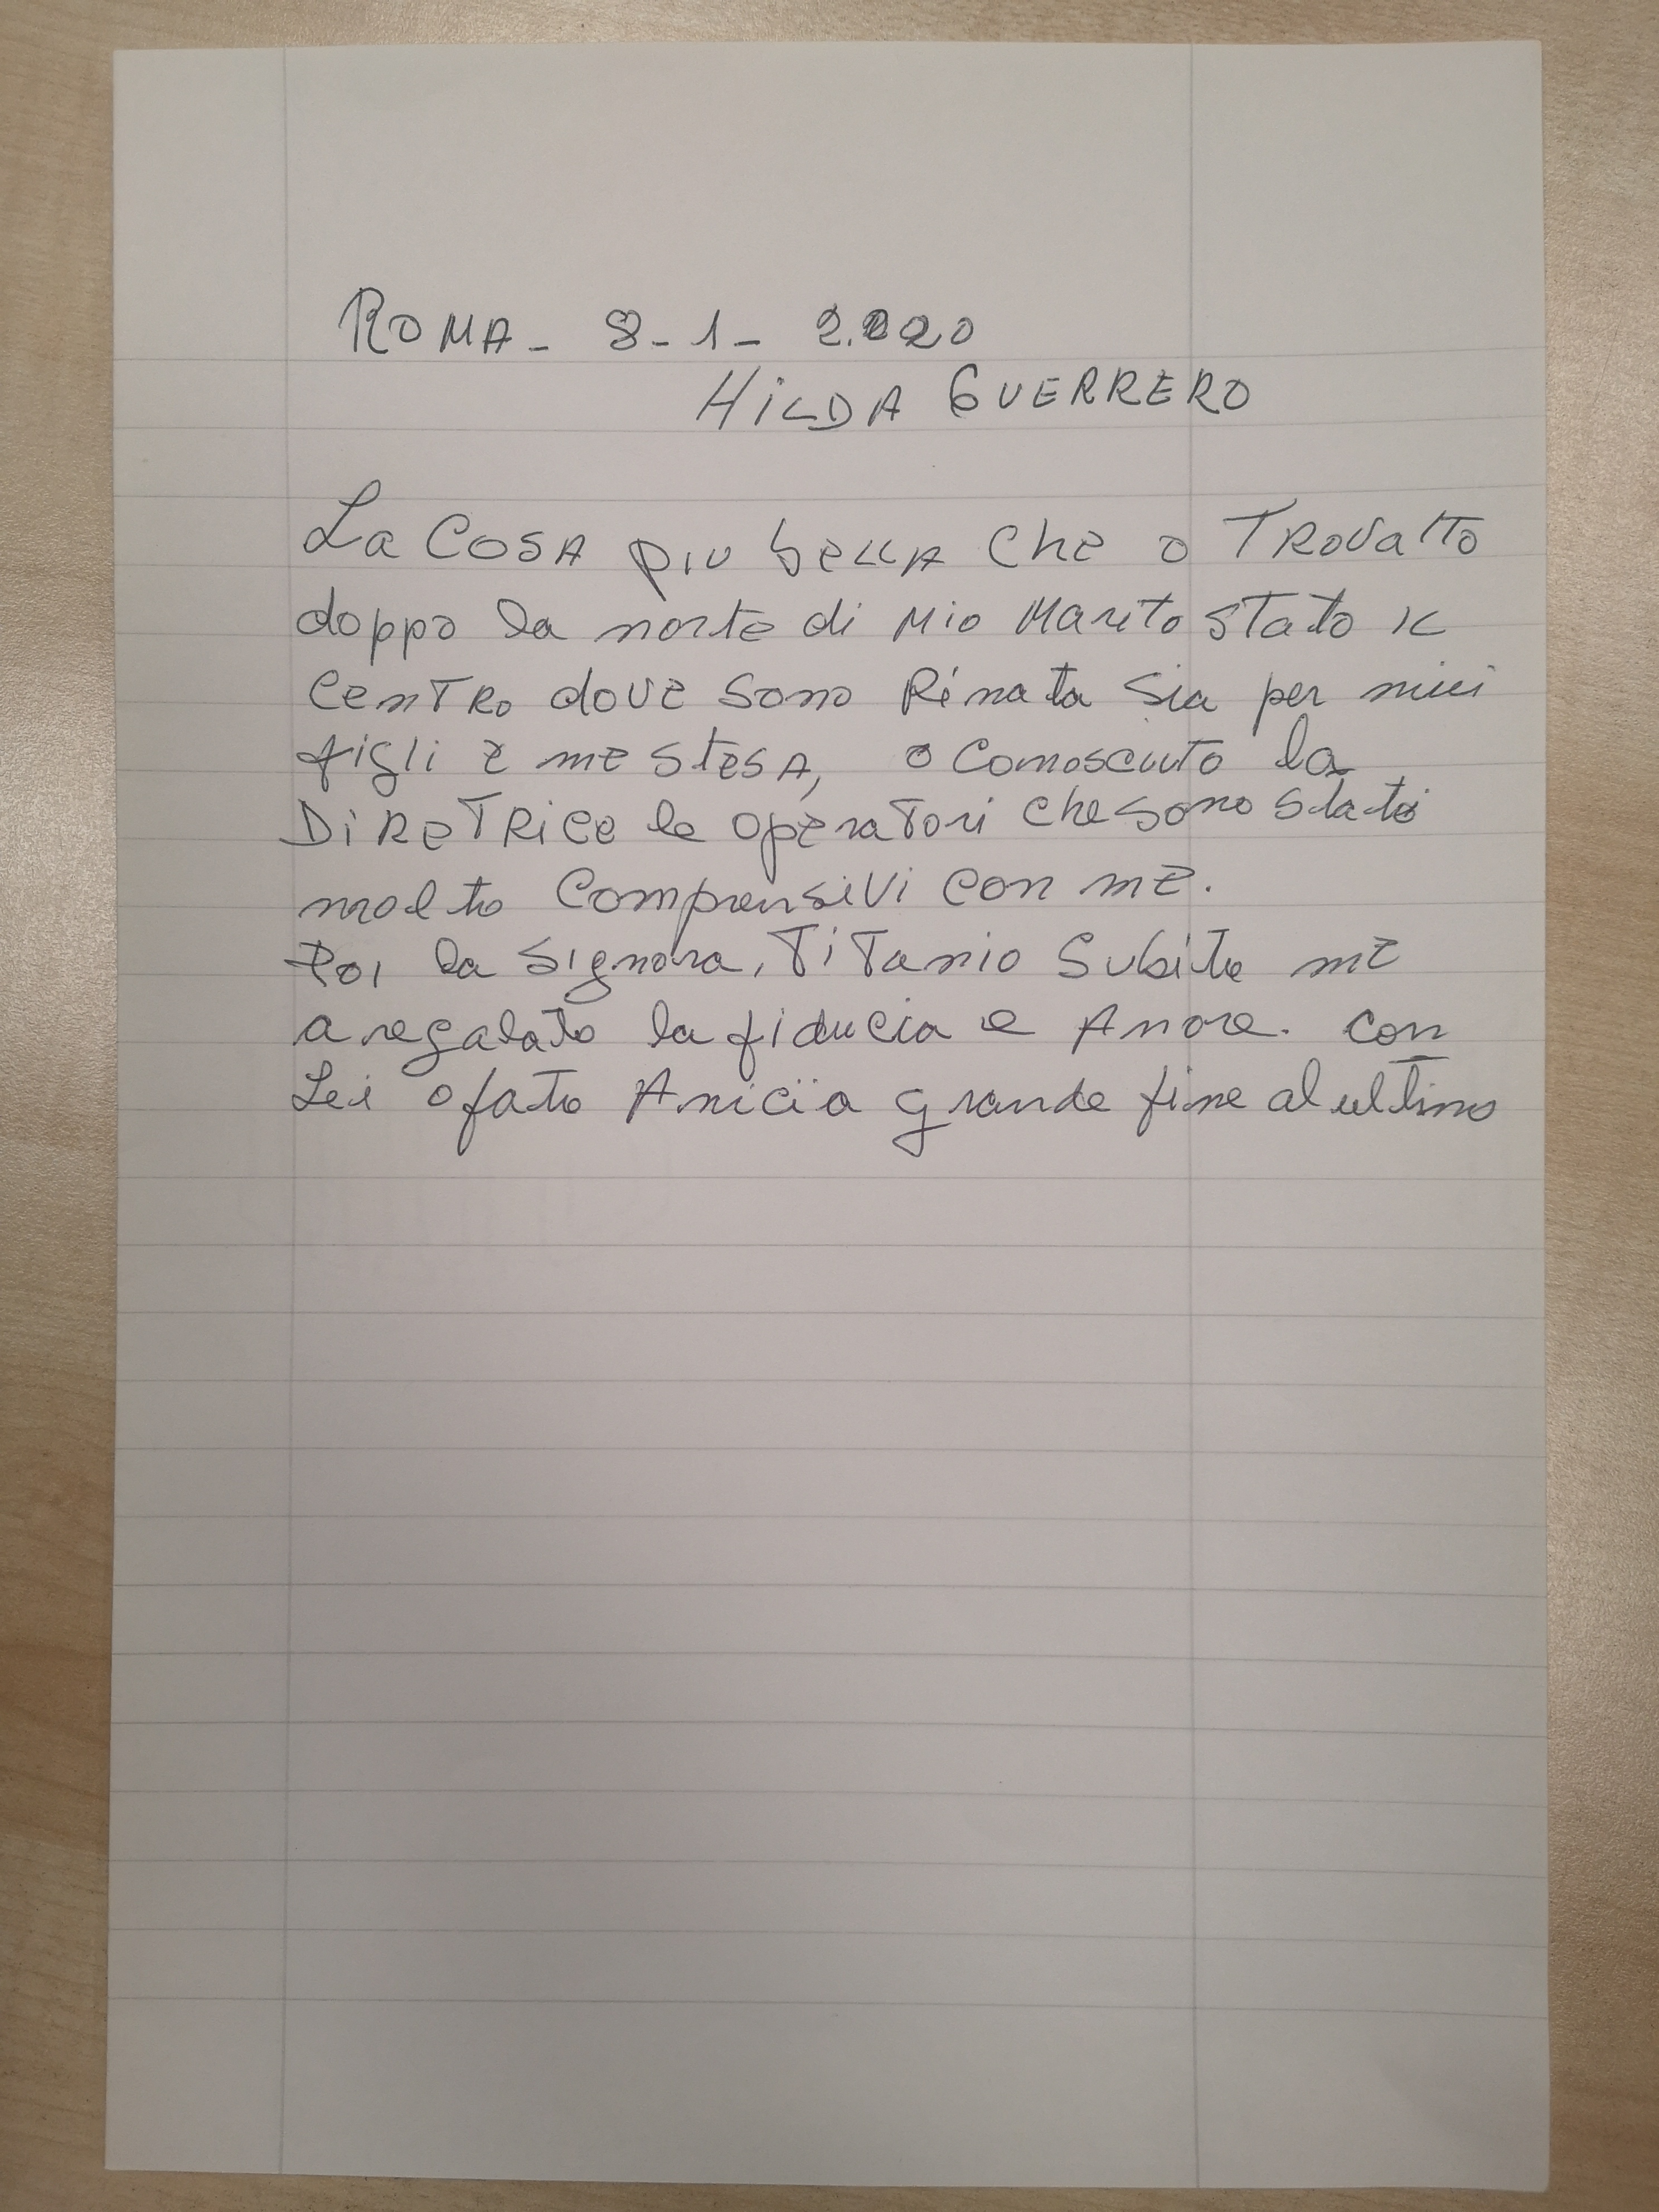 ROMA - 8-1- 2.020
HILDA GUERRERO
La COSA più bella che o TROVATTO
doppo la morte di Mio Marito stato il
CenTRO dove sono Rinata sia per miei
figli e me stesa, o conosciuto la
DiReTRice le operatori che sono stati
molto Comprensivi con me.
Poi la signora, TiTanio Subito me
a regalato la fiducia e Amore. con
Lei o fato Amicia grande fine al ultimo